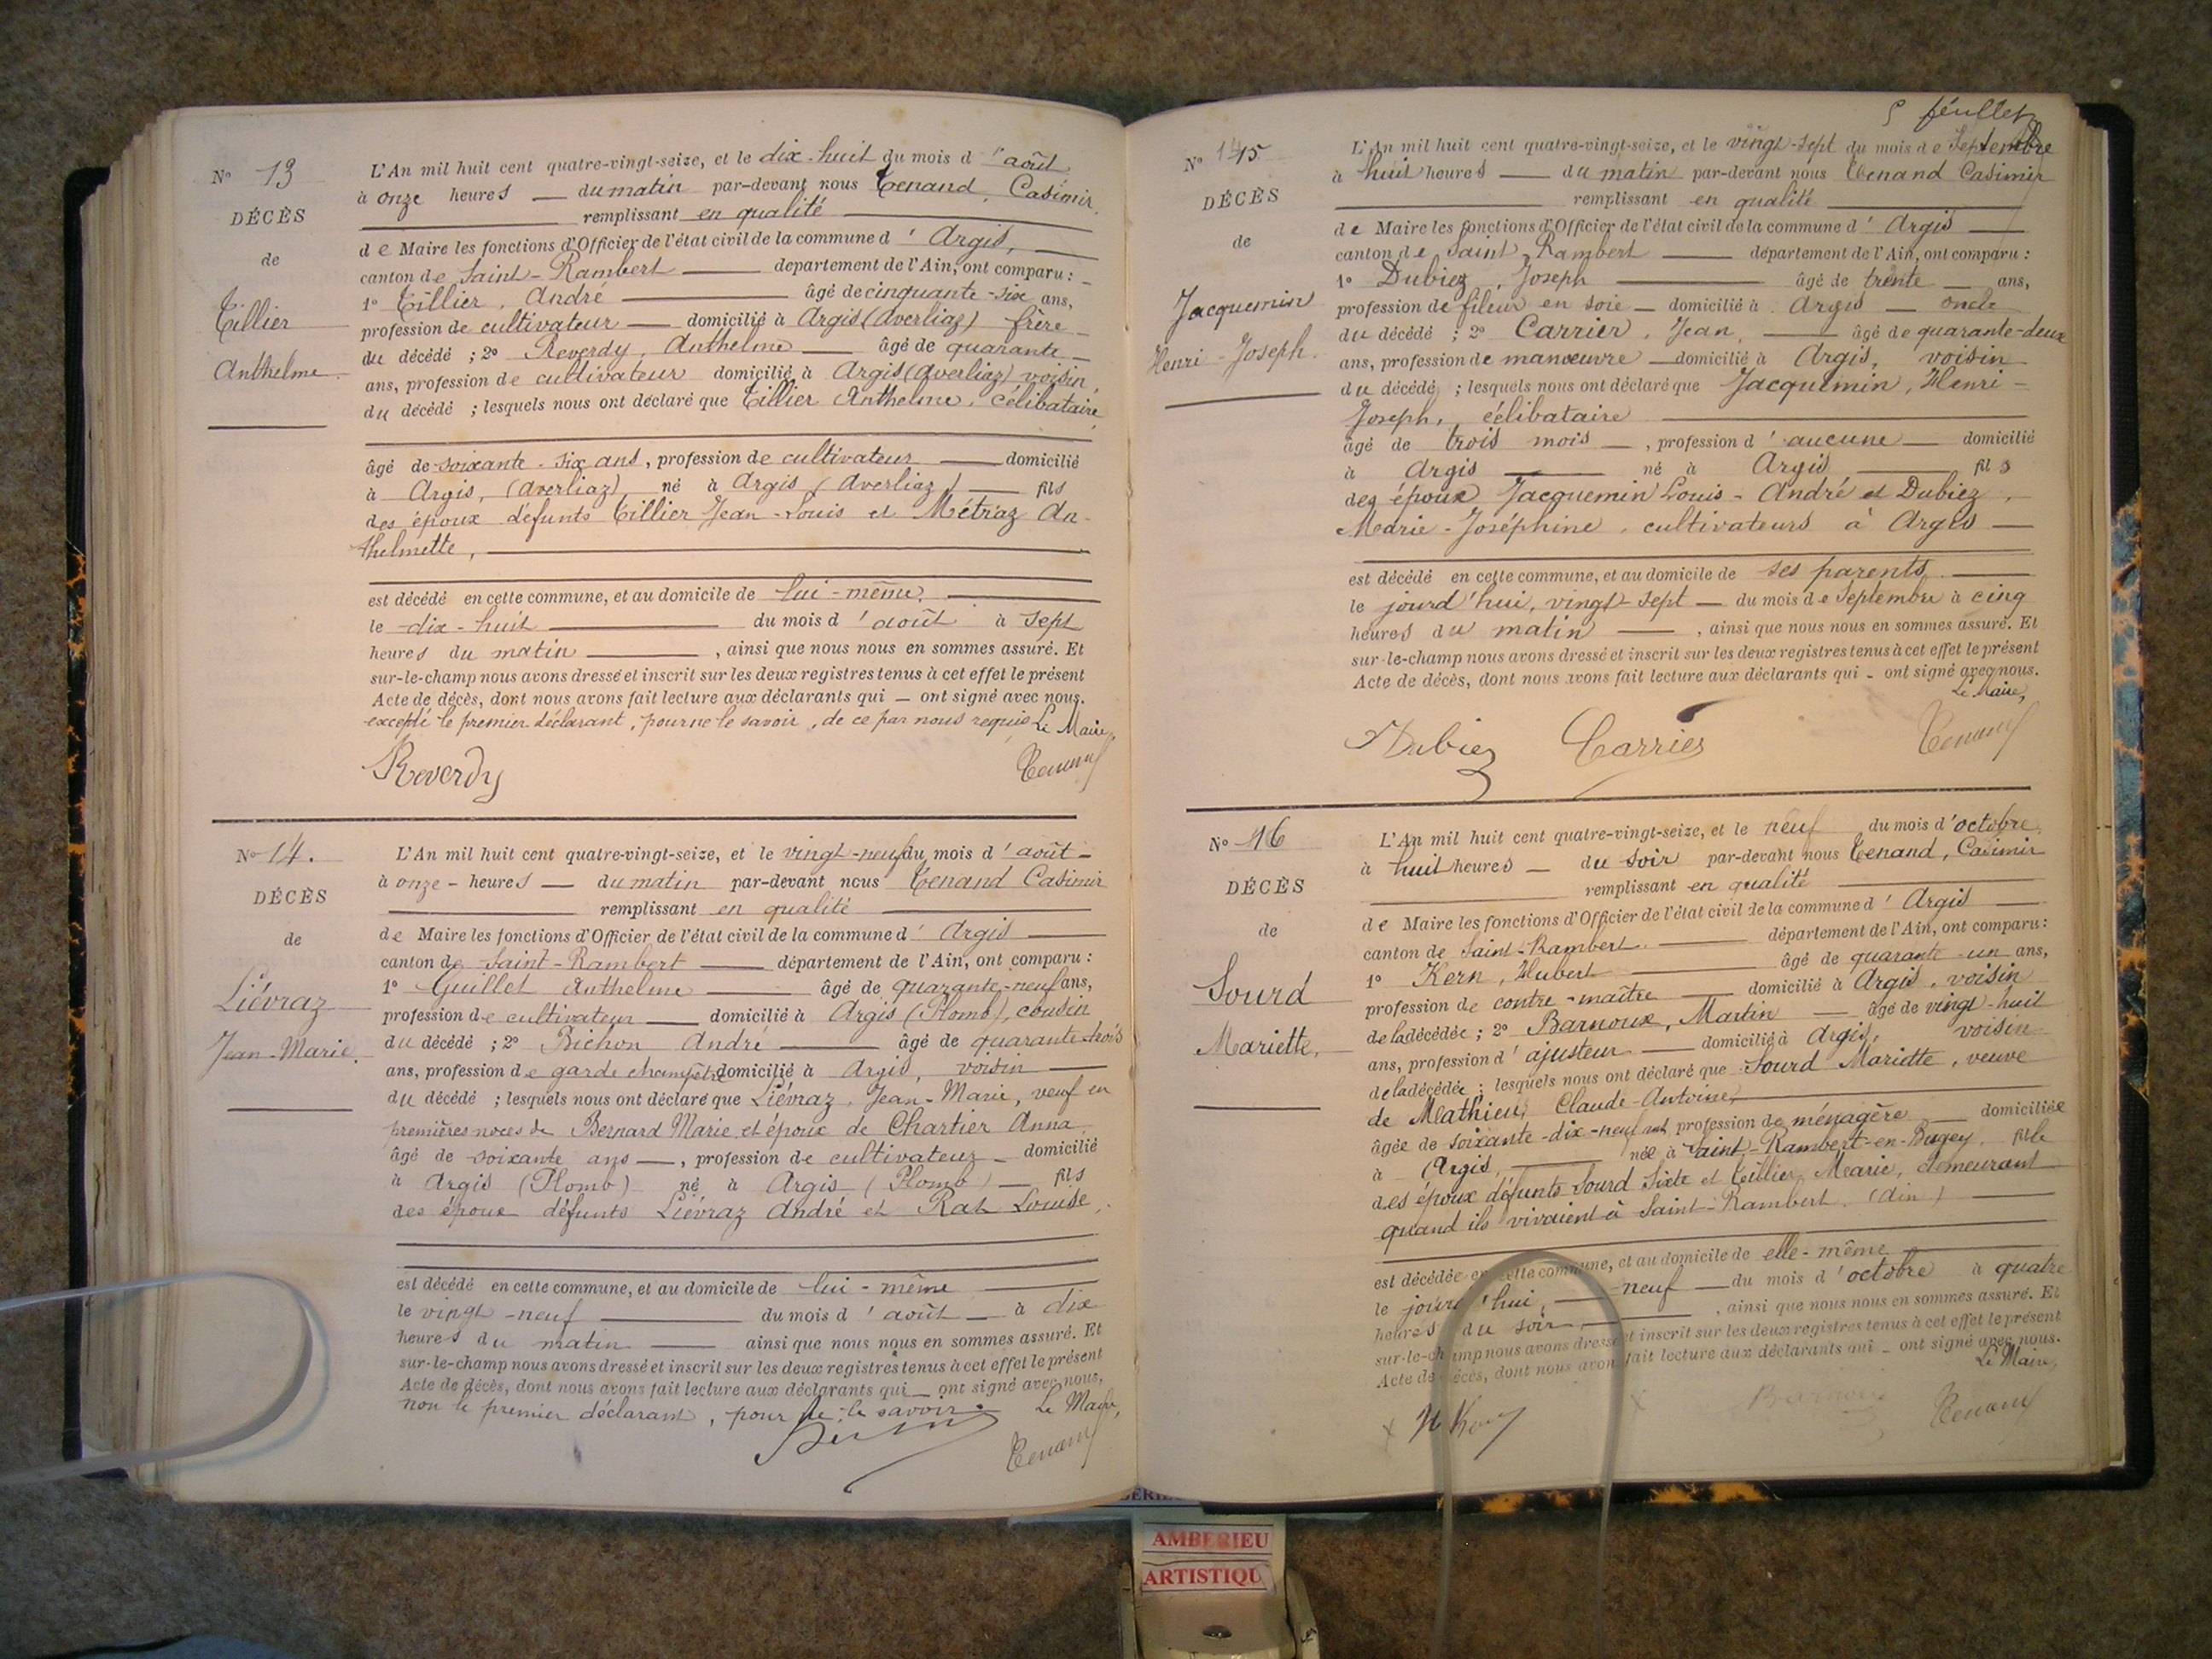 N° 13
DÉCÈS
de
Tillier
Anthelme
L'An mil huit cent quatre-vingt-seize, et le dix-huit du mois d'août
à onze heures du matin par-devant nous Tenand, Casimir,
remplissant en qualité
de Maire les fonctions d'Officier de l'état civil de la commune d'Argis,
canton de Saint-Rambert département de l'Ain, ont comparu :
1° Tillier, André âgé de cinquante-six ans,
profession de cultivateur domicilié à Argis (Averliaz) frère
du décédé ; 2° Reverdy, Anthelme âgé de quarante
ans, profession de cultivateur domicilié à Argis (Averliaz) voisin,
du décédé ; lesquels nous ont déclaré que Tillier Anthelme, célibataire,
âgé de soixante-six ans, profession de cultivateur domicilié
à Argis, (Averliaz) né à Argis (Averliaz) fils
des époux défunts Tillier Jean-Louis et Métraz An-
thelmette,
est décédé en cette commune, et au domicile de lui-même,
le dix-huit du mois d'août à sept
heures du matin, ainsi que nous nous en sommes assuré. Et
sur-le-champ nous avons dressé et inscrit sur les deux registres tenus à cet effet le présent
Acte de décès, dont nous avons fait lecture aux déclarants qui ont signé avec nous.
excepté le premier déclarant, pour ne le savoir, de ce par nous requis Le Maire,
Reverdy Tenand
N° 14.
DÉCÈS
de
Liévraz
Jean-Marie.
L'An mil huit cent quatre-vingt-seize, et le vingt-neuf du mois d'août
à onze heures du matin par-devant nous Tenand Casimir
remplissant en qualité
de Maire les fonctions d'Officier de l'état civil de la commune d'Argis
canton de Saint-Rambert département de l'Ain, ont comparu :
1° Guillet Anthelme âgé de quarante-neuf ans,
profession de cultivateur domicilié à Argis (Plomb), cousin
du décédé ; 2° Bichon André âgé de quarante-trois
ans, profession de garde champêtre domicilié à Argis, voisin
du décédé ; lesquels nous ont déclaré que Liévraz, Jean-Marie, veuf en
premières noces de Bernard Marie et époux de Chartier Anna
âgé de soixante ans, profession de cultivateur domicilié
à Argis (Plomb) né à Argis (Plomb) fils
des époux défunts Liévraz André et Rat Louise,
est décédé en cette commune, et au domicile de lui-même
le vingt-neuf du mois d'août à dix
heures du matin ainsi que nous nous en sommes assuré. Et
sur-le-champ nous avons dressé et inscrit sur les deux registres tenus à cet effet le présent
Acte de décès, dont nous avons fait lecture aux déclarants qui ont signé avec nous,
non le premier déclarant, pour ne le savoir. Le Maire,
Tenand
5 feuillet
N° 15
DÉCÈS
de
Jacquemin
Henri-Joseph.
L'An mil huit cent quatre-vingt-seize, et le vingt-sept du mois de Septembre
à huit heures du matin par-devant nous Tenand Casimir
remplissant en qualité
de Maire les fonctions d'Officier de l'état civil de la commune d'Argis
canton de Saint Rambert département de l'Ain, ont comparu :
1° Dubiez, Joseph âgé de trente ans,
profession de fileur en soie domicilié à Argis oncle
du décédé ; 2° Carrier, Jean, âgé de quarante-deux
ans, profession de manœuvre domicilié à Argis, voisin
du décédé ; lesquels nous ont déclaré que Jacquemin, Henri-
Joseph, célibataire
âgé de trois mois, profession d'aucune domicilié
à Argis né à Argis fils
des époux Jacquemin Louis-André et Dubiez,
Marie-Joséphine, cultivateurs à Argis
est décédé en cette commune, et au domicile de ses parents
le jourd'hui, vingt-sept du mois de Septembre à cinq
heures du matin, ainsi que nous nous en sommes assuré. Et
sur-le-champ nous avons dressé et inscrit sur les deux registres tenus à cet effet le présent
Acte de décès, dont nous avons fait lecture aux déclarants qui ont signé avec nous.
Le Maire,
Dubiez Carrier Tenand
N° 16
DÉCÈS
de
Sourd
Mariette,
L'An mil huit cent quatre-vingt-seize, et le neuf du mois d'octobre,
à huit heures du soir par-devant nous Tenand, Casimir
remplissant en qualité
de Maire les fonctions d'Officier de l'état civil de la commune d'Argis
canton de Saint-Rambert département de l'Ain, ont comparu :
1° Kern, Hubert âgé de quarante-un ans,
profession de contre-maître domicilié à Argis, voisin
de la décédée ; 2° Barnoux, Martin âgé de vingt-huit
ans, profession d'ajusteur domicilié à Argis, voisin
de la décédée ; lesquels nous ont déclaré que Sourd Mariette, veuve
de Mathieu, Claude-Antoine,
âgée de soixante-dix-neuf ans profession de ménagère domiciliée
à Argis, née à Saint-Rambert-en-Bugey, fille
des époux défunts Sourd Sixte et Tillier, Marie, demeurant
quand ils vivaient à Saint-Rambert, (Ain)
est décédée en cette commune, et au domicile de elle-même
le jourd'hui, neuf du mois d'octobre à quatre
heures du soir, ainsi que nous nous en sommes assuré. Et
sur-le-champ nous avons dressé et inscrit sur les deux registres tenus à cet effet le présent
Acte de décès, dont nous avons fait lecture aux déclarants qui ont signé avec nous.
Le Maire,
H Kern Barnoux Tenand
AMBERIEU
ARTISTIQU